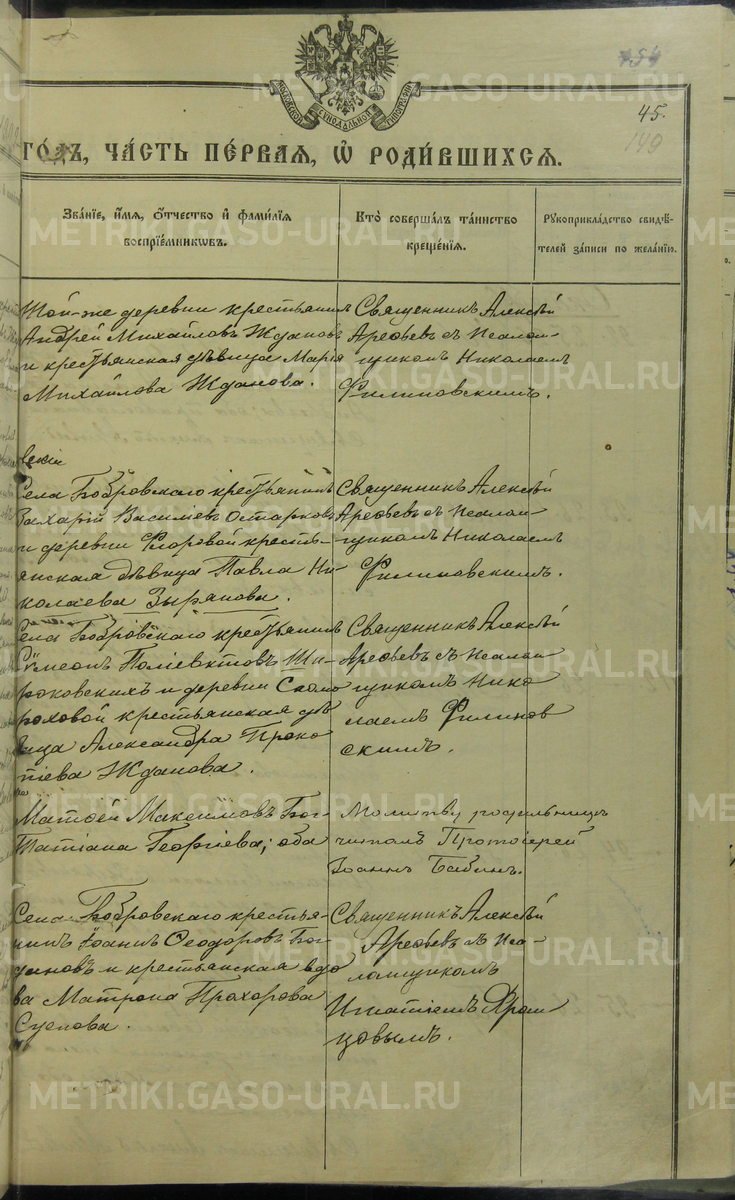 45.
149
годъ, ча́сть пе́рвая, ѡ҆ роди́вшихсѧ.
Зва́нїе, и҆́мѧ, ѻ҆́тчество и҆ фами́лїѧ
воспрїе́мникѡвъ.
Кто̀ соверша́лъ та́инство
креще́нїѧ.
Рꙋкоприкла́дство свидѣ́-
телей за́писи по жела́нїю.
Той-же деревни крестьянинъ
Андрей Михайловъ Ждановъ
и крестьянская дѣвица Марія
Михайлова Жданова.
Священникъ Алексѣй
Арефьевъ съ псалом-
щикомъ Николаемъ
Филиповскимъ.
Села Бобровскаго крестьянинъ
Захарій Василіевъ Остарковъ
и деревни Флоровой кресть-
янская дѣвица Павла Ни-
колаева Зырянова.
Священникъ Алексѣй
Арефьевъ съ псалом-
щикомъ Николаемъ
Филиповскимъ.
Села Бобровскаго крестьянинъ
Сѵмеонъ Поліевктовъ Ши-
роковскихъ и деревни Ско
роховой крестьянская дѣ
вица Александра Проко
піева Жданова.
Священникъ Алексѣй
Арефьевъ съ псалом
щикомъ Нико
лаемъ Филипов
скимъ.
Матѳей Максимовъ Бог-
Татіана Георгіева; оба
Молитву родильницѣ
читалъ Протоіерей
Іоаннъ Бабинъ.
Села Бобровскаго крестья-
нинъ Іоаннъ Ѳеодоровъ Бог-
дановъ и крестьянская вдо
ва Матрона Прохорова
Суслова.
Священникъ Алексѣй
Арефьевъ съ пса-
ломщикомъ
Игнатіемъ Хром
цовымъ.
METRIKI.GASO-URAL.RU